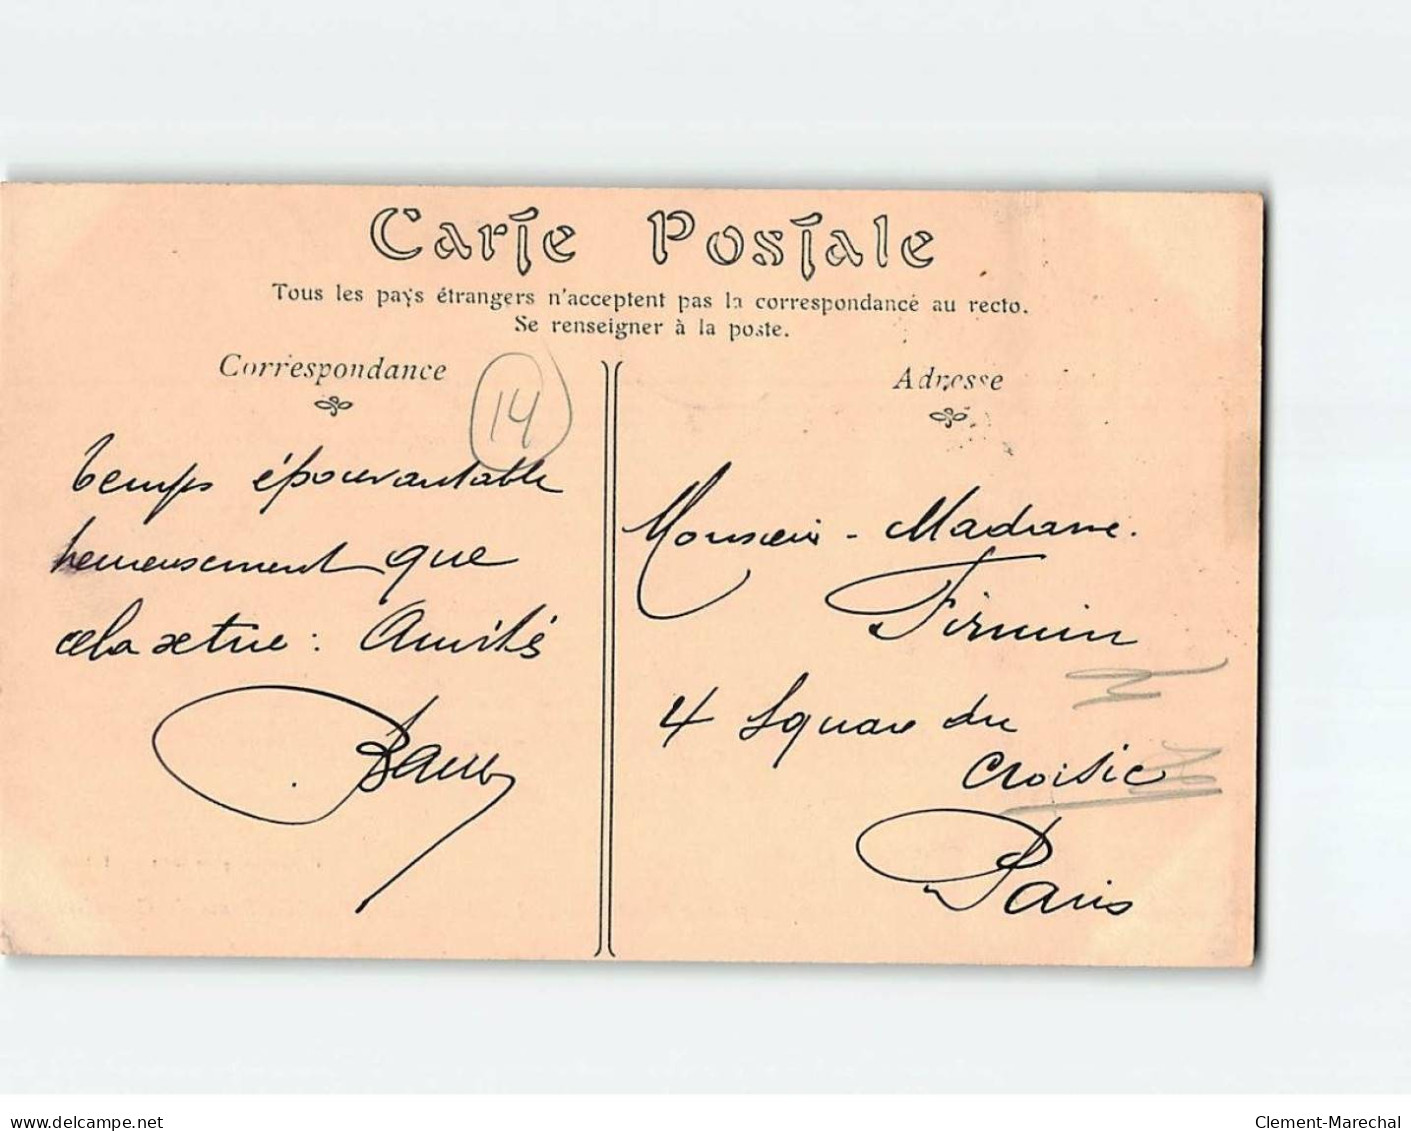 Carte Postale
Tous les pays étrangers n'acceptent pas la correspondance au recto.
Se renseigner à la poste.
Correspondance
Adresse
14
temps épouvantable
heureusement que
cela se tue : Amitiés
Monsieur - Madame.
Firmin
4 Square du
Croisic
Paris
delcampe.net
Clement-Marechal